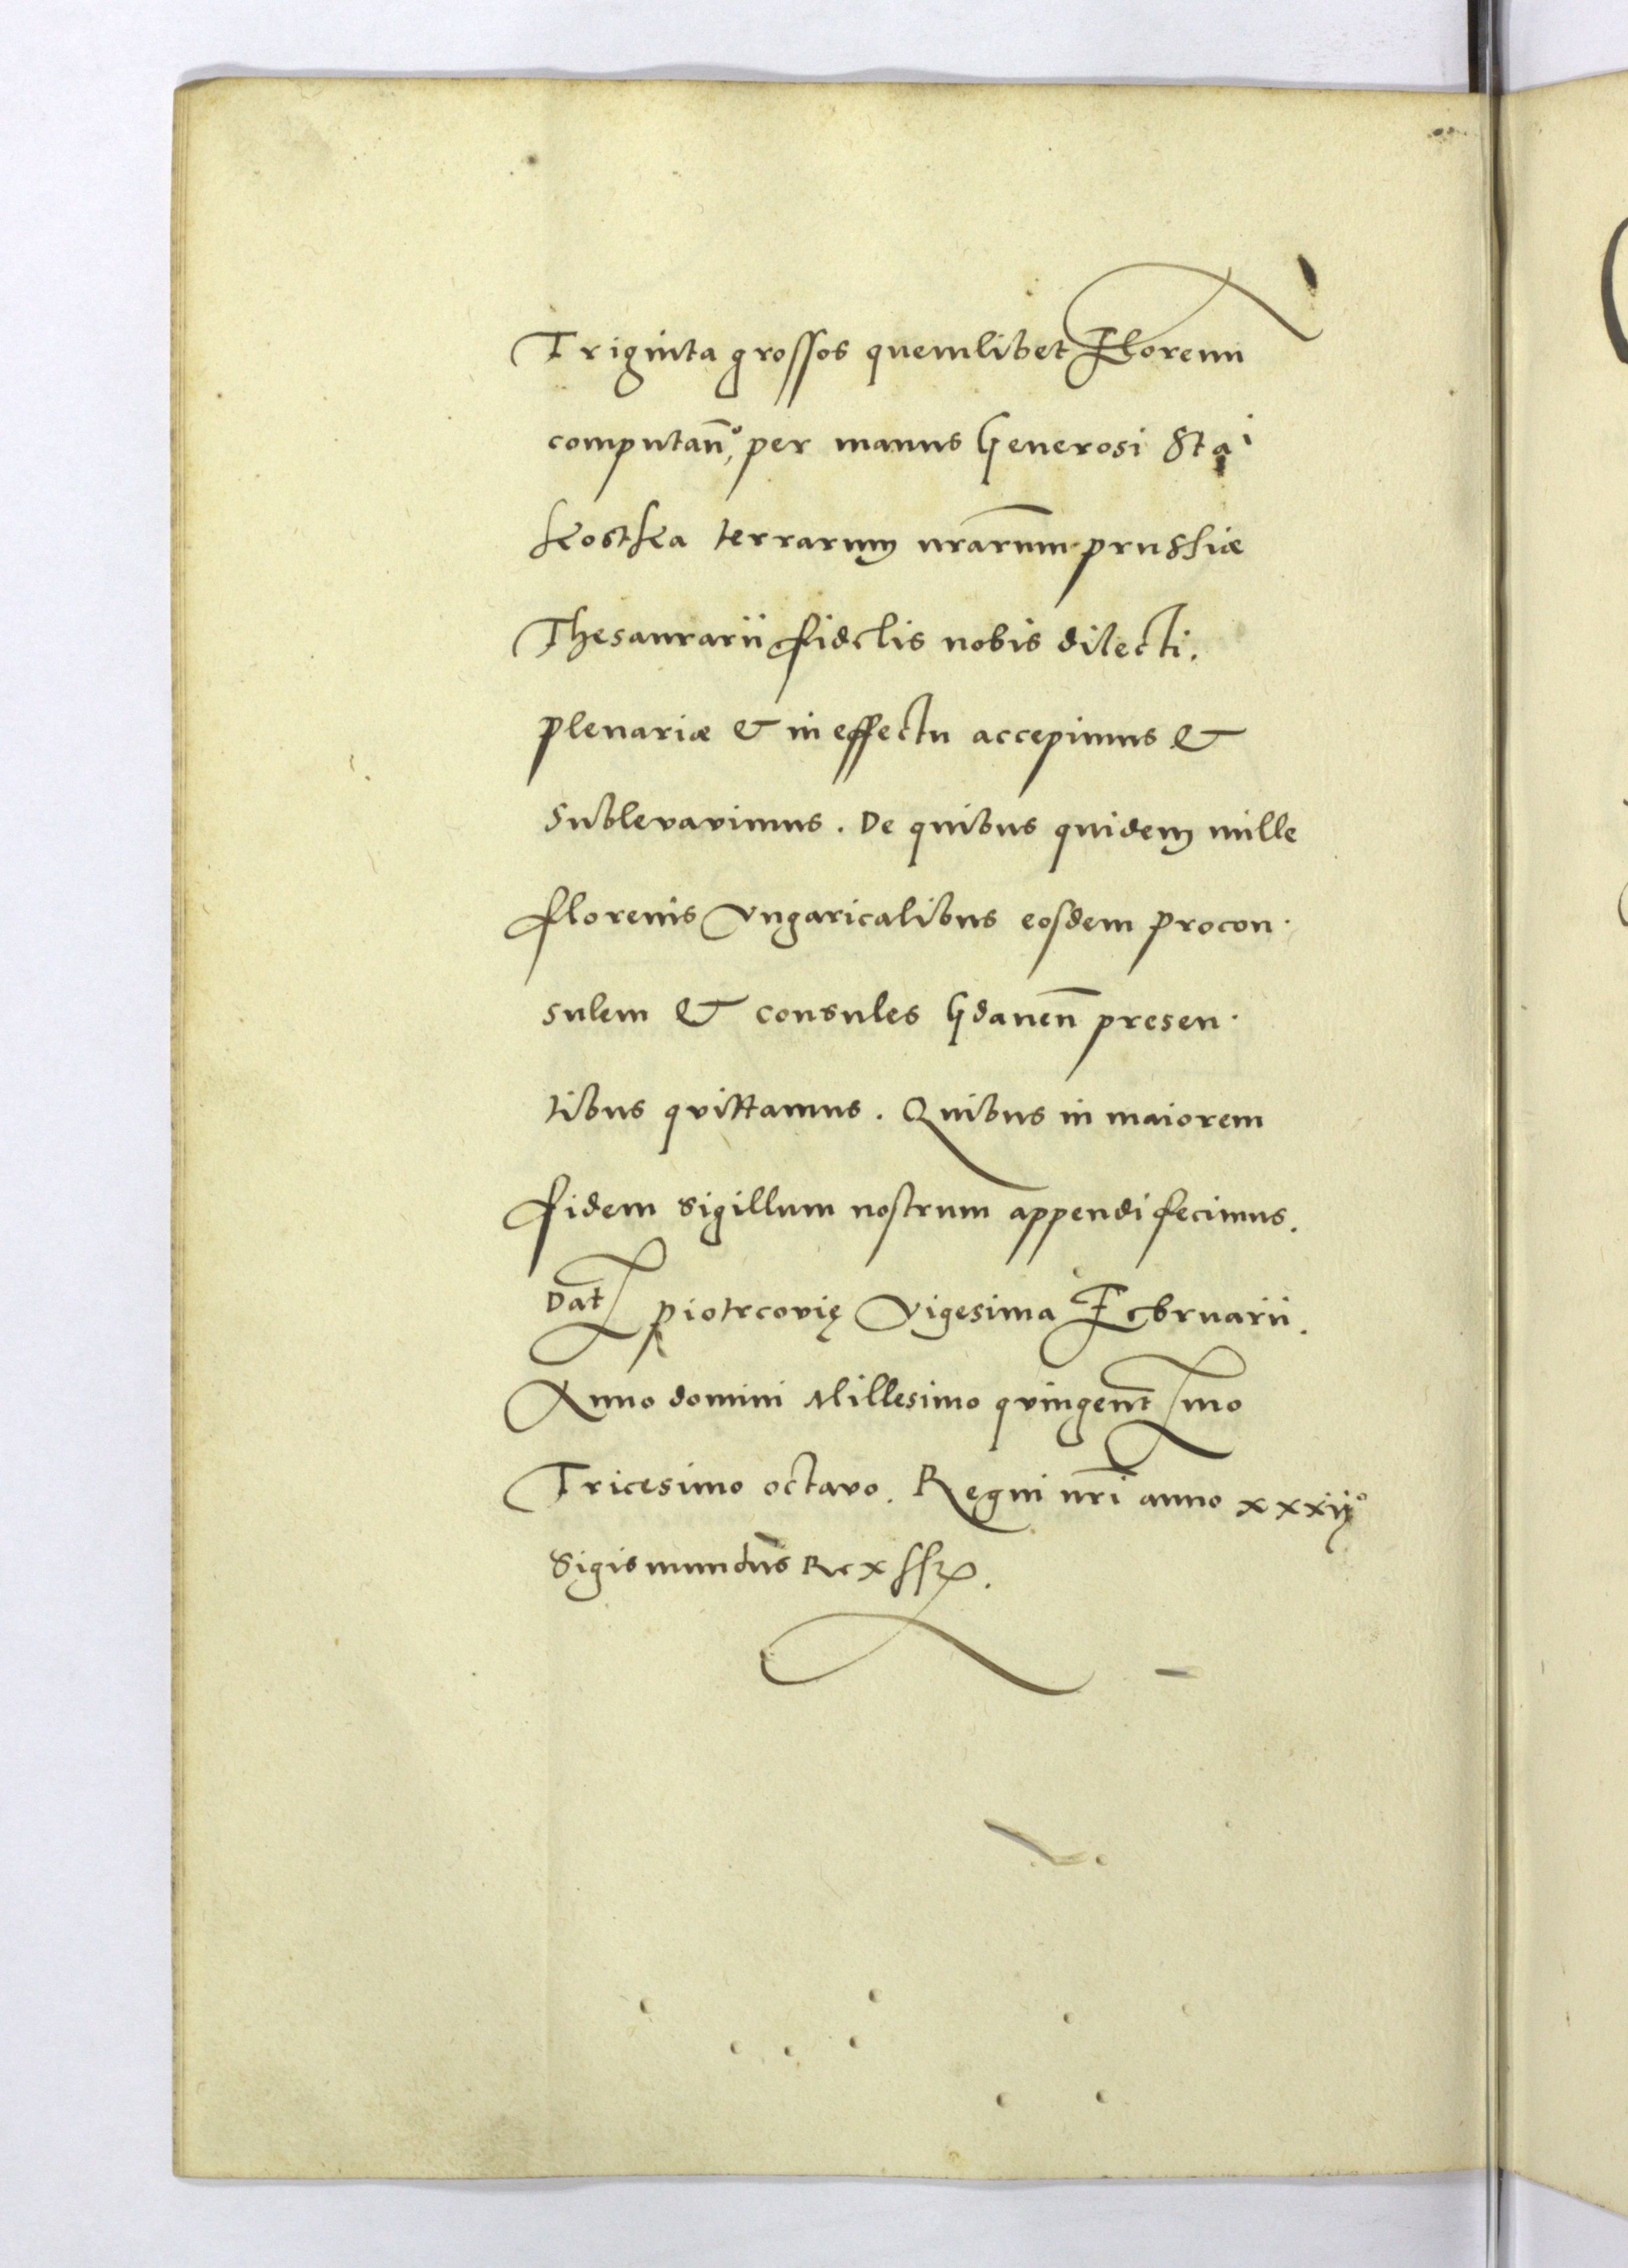 Triginta grossos quemlibet Florenū
computan̄o, per manus Generosi Stai
Kostka terrarum nrārum prussiæ
Thesaurarii fidelis nobis dilecti.
plenariæ & in effectu accepimus &
Sublevavimus. De quibus quidem mille
florenis Vngaricalibus eosdem procon·
sulem & consules Gdaneñ presen·
tibus quittamus. Quibus in maiorem
fidem Sigillum nostrum appendi fecimus.
Dat̄ piotrcovię Vigesima Februarii.
Anno domini Millesimo quingent̄mo
Tricesimo octavo. Regni nr̄i anno xxxijº
Sigismundus Rex sst.